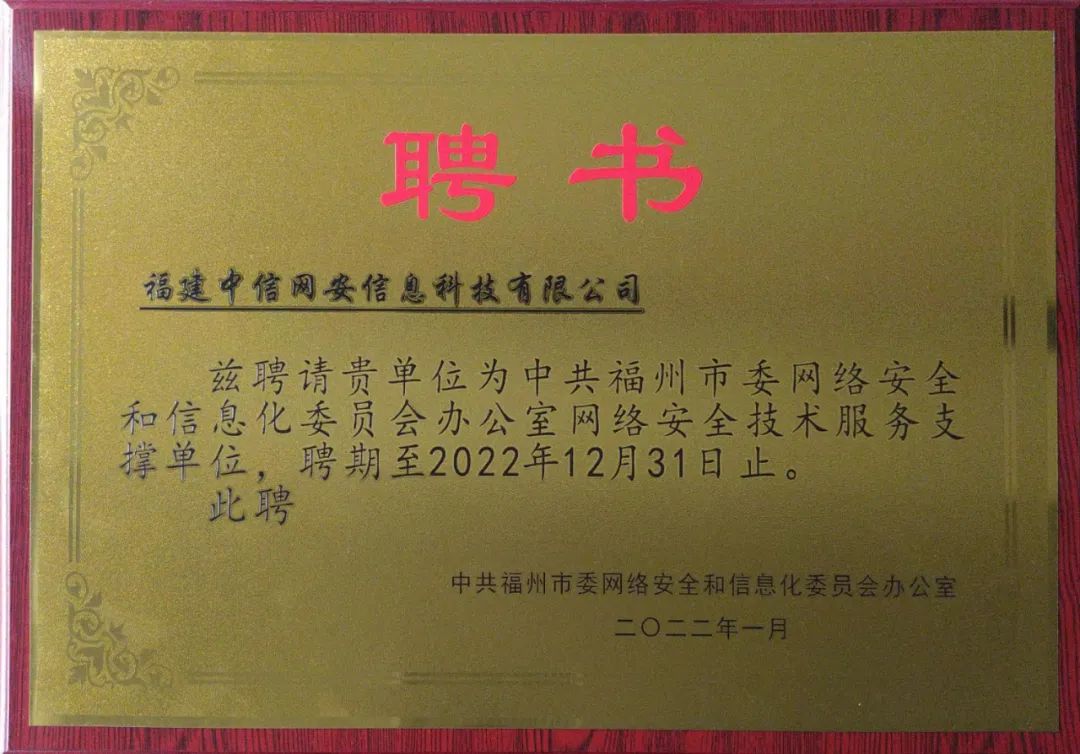 聘书
福建中信网安信息科技有限公司
兹聘请贵单位为中共福州市委网络安全
和信息化委员会办公室网络安全技术服务支
撑单位，聘期至2022年12月31日止。
此聘
中共福州市委网络安全和信息化委员会办公室
二〇二二年一月